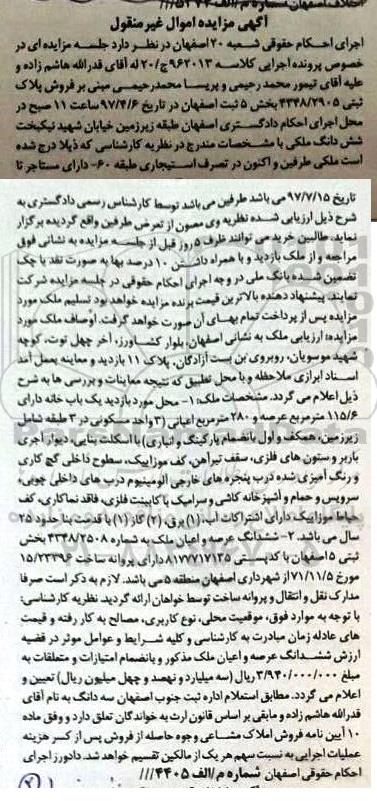 آگهی مزایده اموال غیر منقول
اجرای احکام حقوقی شعبه ۲۰ اصفهان در نظر دارد جلسه مزایده ای در
خصوص پرونده اجرایی کلاسه ۹۶۲۰۱۳ج/۲۰ له آقای قدرالله هاشم زاده و
علیه آقای تیمور محمد رحیمی و پریسا محمدرحیمی مبنی بر فروش پلاک
ثبتی ۴۳۴۸/۲۹۰۵ بخش ۵ ثبت اصفهان در تاریخ ۹۷/۴/۶ ساعت ۱۱ صبح در
محل اجرای احکام دادگستری اصفهان طبقه زیرزمین خیابان شهید نیکبخت
شش دانگ ملکی با مشخصات مندرج در نظریه کارشناسی که ذیلا درج شده
است ملکی طرفین و اکنون در تصرف استیجاری طبقه ۶۰- دارای مستاجر تا
تاریخ ۹۷/۷/۱۵ می باشد طرفین می باشد توسط کارشناس رسمی دادگستری به
شرح ذیل ارزیابی شده نظریه وی مصون از تعرض طرفین واقع گردیده برگزار
نماید. طالبین خرید می توانند ظرف ۵ روز قبل از جلسه مزایده به نشانی فوق
مراجعه و از ملک بازدید و با همراه داشتن ۱۰ درصد بها به صورت نقد یا چک
تضمین شده بانک ملی در وجه اجرای احکام حقوقی در جلسه مزایده شرکت
نمایند. پیشنهاد دهنده بالاترین قیمت برنده مزایده خواهد بود تسلیم ملک مورد
مزایده پس از پرداخت تمام بهای آن صورت خواهد گرفت. اوصاف ملک مورد
مزایده: ارزیابی ملک به نشانی اصفهان، بلوار کشاورز، آخر چهل توت، کوچه
شهید موسویان، روبروی بن بست آزادگان، پلاک ۱۱ بازدید و معاینه بعمل آمد
اسناد ابرازی ملاحظه و با محل تطبیق که نتیجه معاینات و بررسی ها به شرح
ذیل اعلام می گردد. مشخصات ملک: ۱- محل مورد بازدید یک باب خانه دارای
۱۱۵/۶ مترمربع عرصه و ۲۸۰ مترمربع اعیانی (۳ واحد مسکونی در ۳ طبقه شامل
زیرزمین، همکف و اول بانضمام پارکینگ و انباری) با اسکلت بنایی، دیوار آجری
باربر و ستون های فلزی، سقف تیرآهن، کف موزاییک، سطوح داخلی گچ کاری
و رنگ آمیزی شده درب پنجره های خارجی آلومینیوم درب های داخلی چوبی،
سرویس و حمام و آشپزخانه کاشی و سرامیک با کابینت فلزی، فاقد نماکاری، کف
حیاط موزاییک دارای اشتراکات آب، (۱) برق، (۲) گاز (۱) با قدمت بنا حدود ۲۵
سال می باشد. ۲- ششدانگ عرصه و اعیان ملک به شماره ۴۳۴۸/۲۵۰۸ بخش
ثبتی ۵ اصفهان با کدپستی ۸۱۷۷۷۱۷۱۳۵ دارای پروانه ساخت ۱۵/۲۳۳۹۶
مورخ ۷۱/۱۱/۵ از شهرداری اصفهان منطقه ۵ می باشد. لازم به ذکر است صرفا
مدارک نقل و انتقال و پروانه ساخت توسط خواهان ارائه گردید. نظریه کارشناسی:
با توجه به موارد فوق، موقعیت محلی، نوع کاربری، مصالح به کار رفته و قیمت
های عادله زمان مبادرت به کارشناسی و کلیه شرایط و عوامل موثر در قضیه
ارزش ششدانگ عرصه و اعیان ملک مذکور و بانضمام امتیازات و متعلقات به
مبلغ ۳/۹۴۰/۰۰۰/۰۰۰ ریال (سه میلیارد و نهصد و چهل میلیون ریال) تعیین و
اعلام می گردد. مطابق استعلام اداره ثبت جنوب اصفهان سه دانگ به نام آقای
قدرالله هاشم زاده و مابقی بر اساس قانون ارث به خواندگان تعلق دارد و وفق ماده
۱۰ آیین نامه فروش املاک مشاعی وجوه حاصله از فروش پس از کسر هزینه
عملیات اجرایی به نسبت سهم هر یک از مالکین تقسیم خواهد شد. دادورز اجرای
احکام حقوقی اصفهان شماره م/الف ۴۴۰۵///